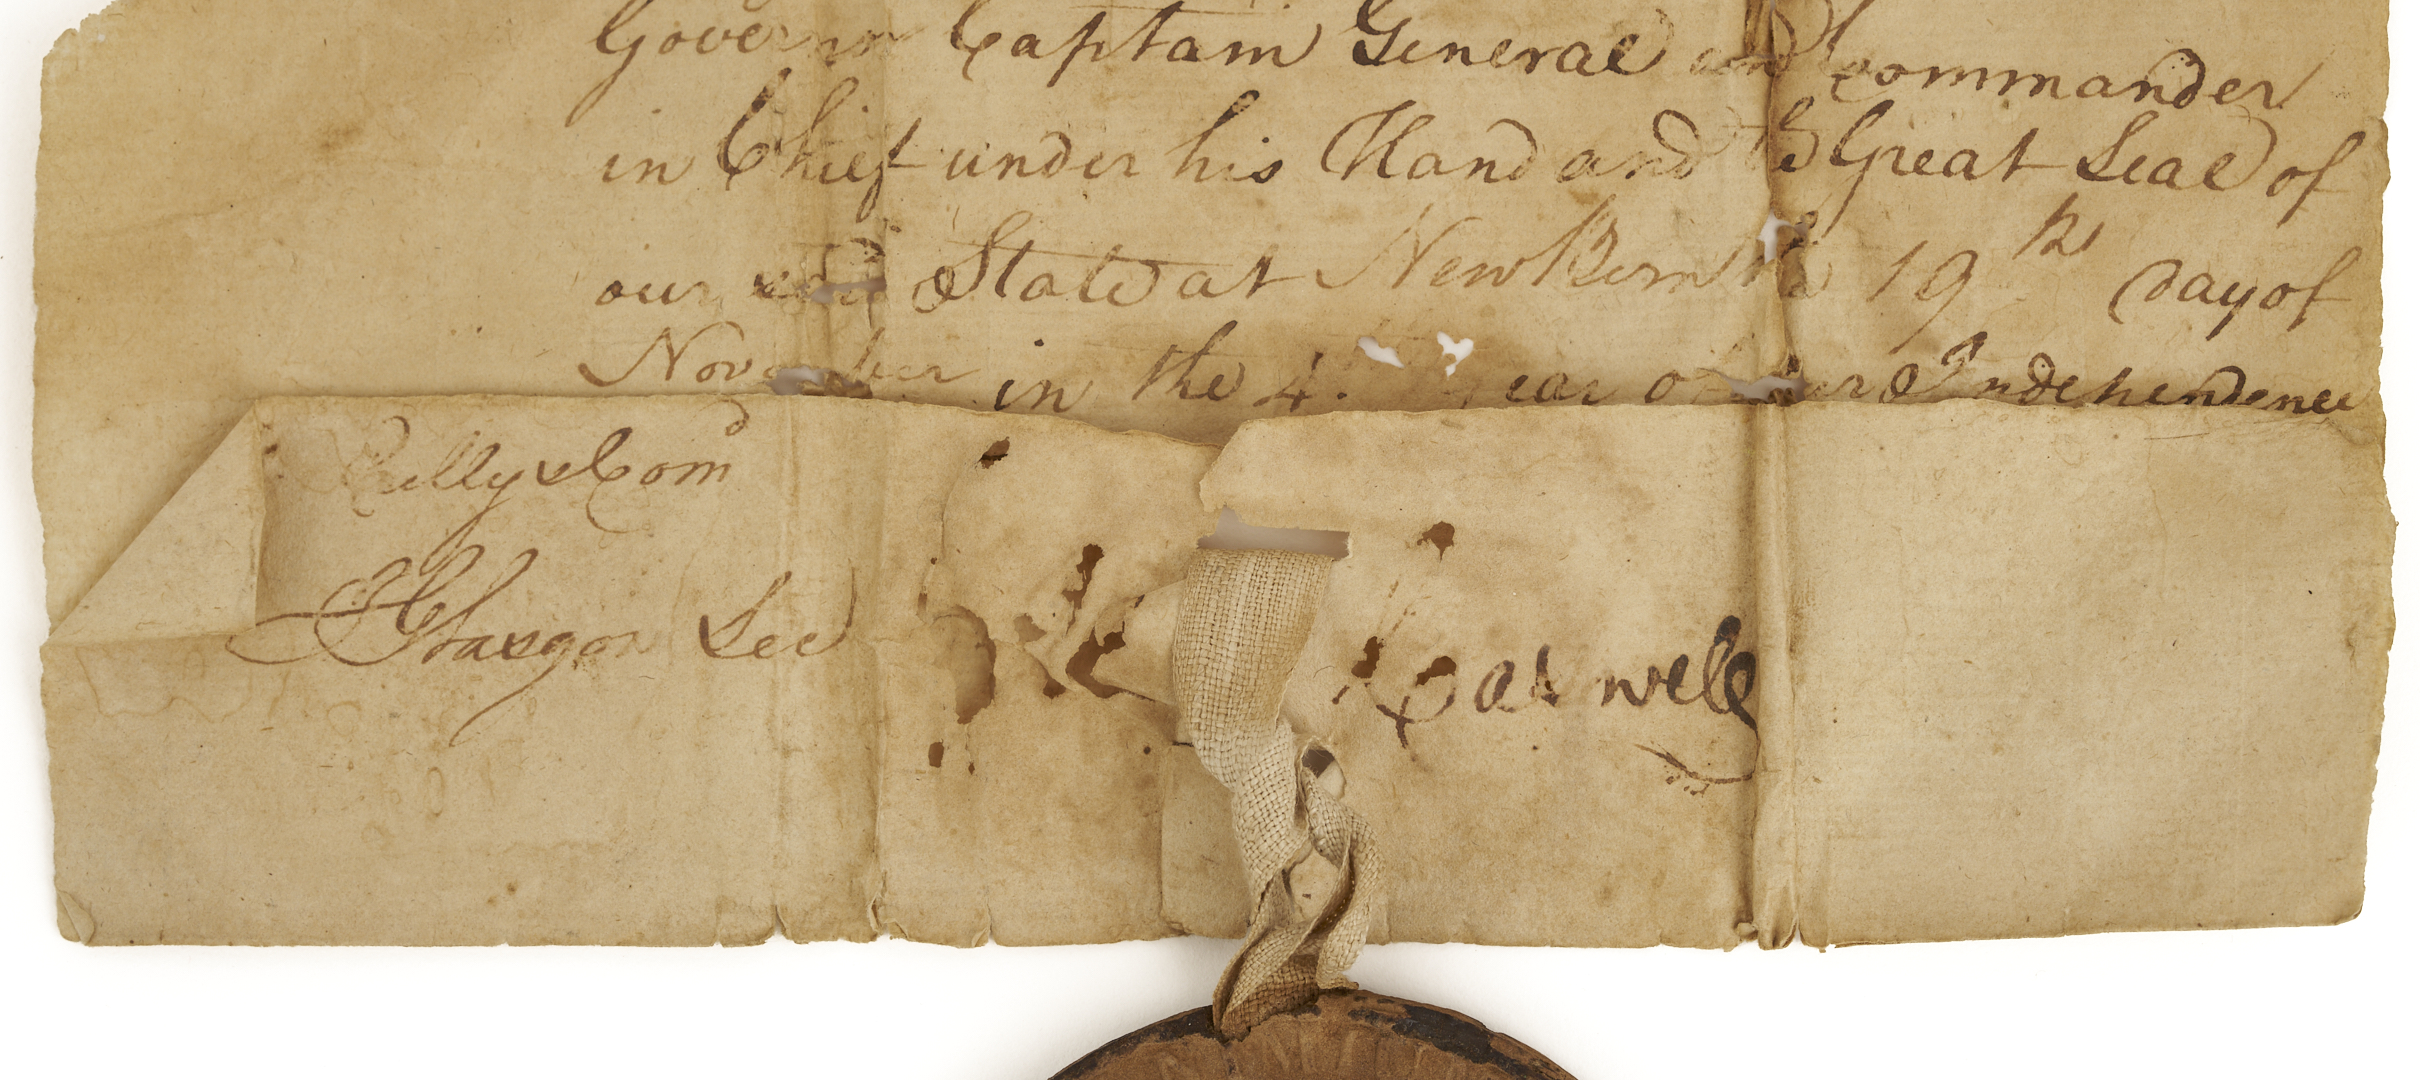 Governor Captain General and Commander
in Chief under his Hand and the Great Seal of
our said State at NewBern the 19th day of
November in the 4. year of our Independence
By his Comd
JGlasgow Sec
R Caswell